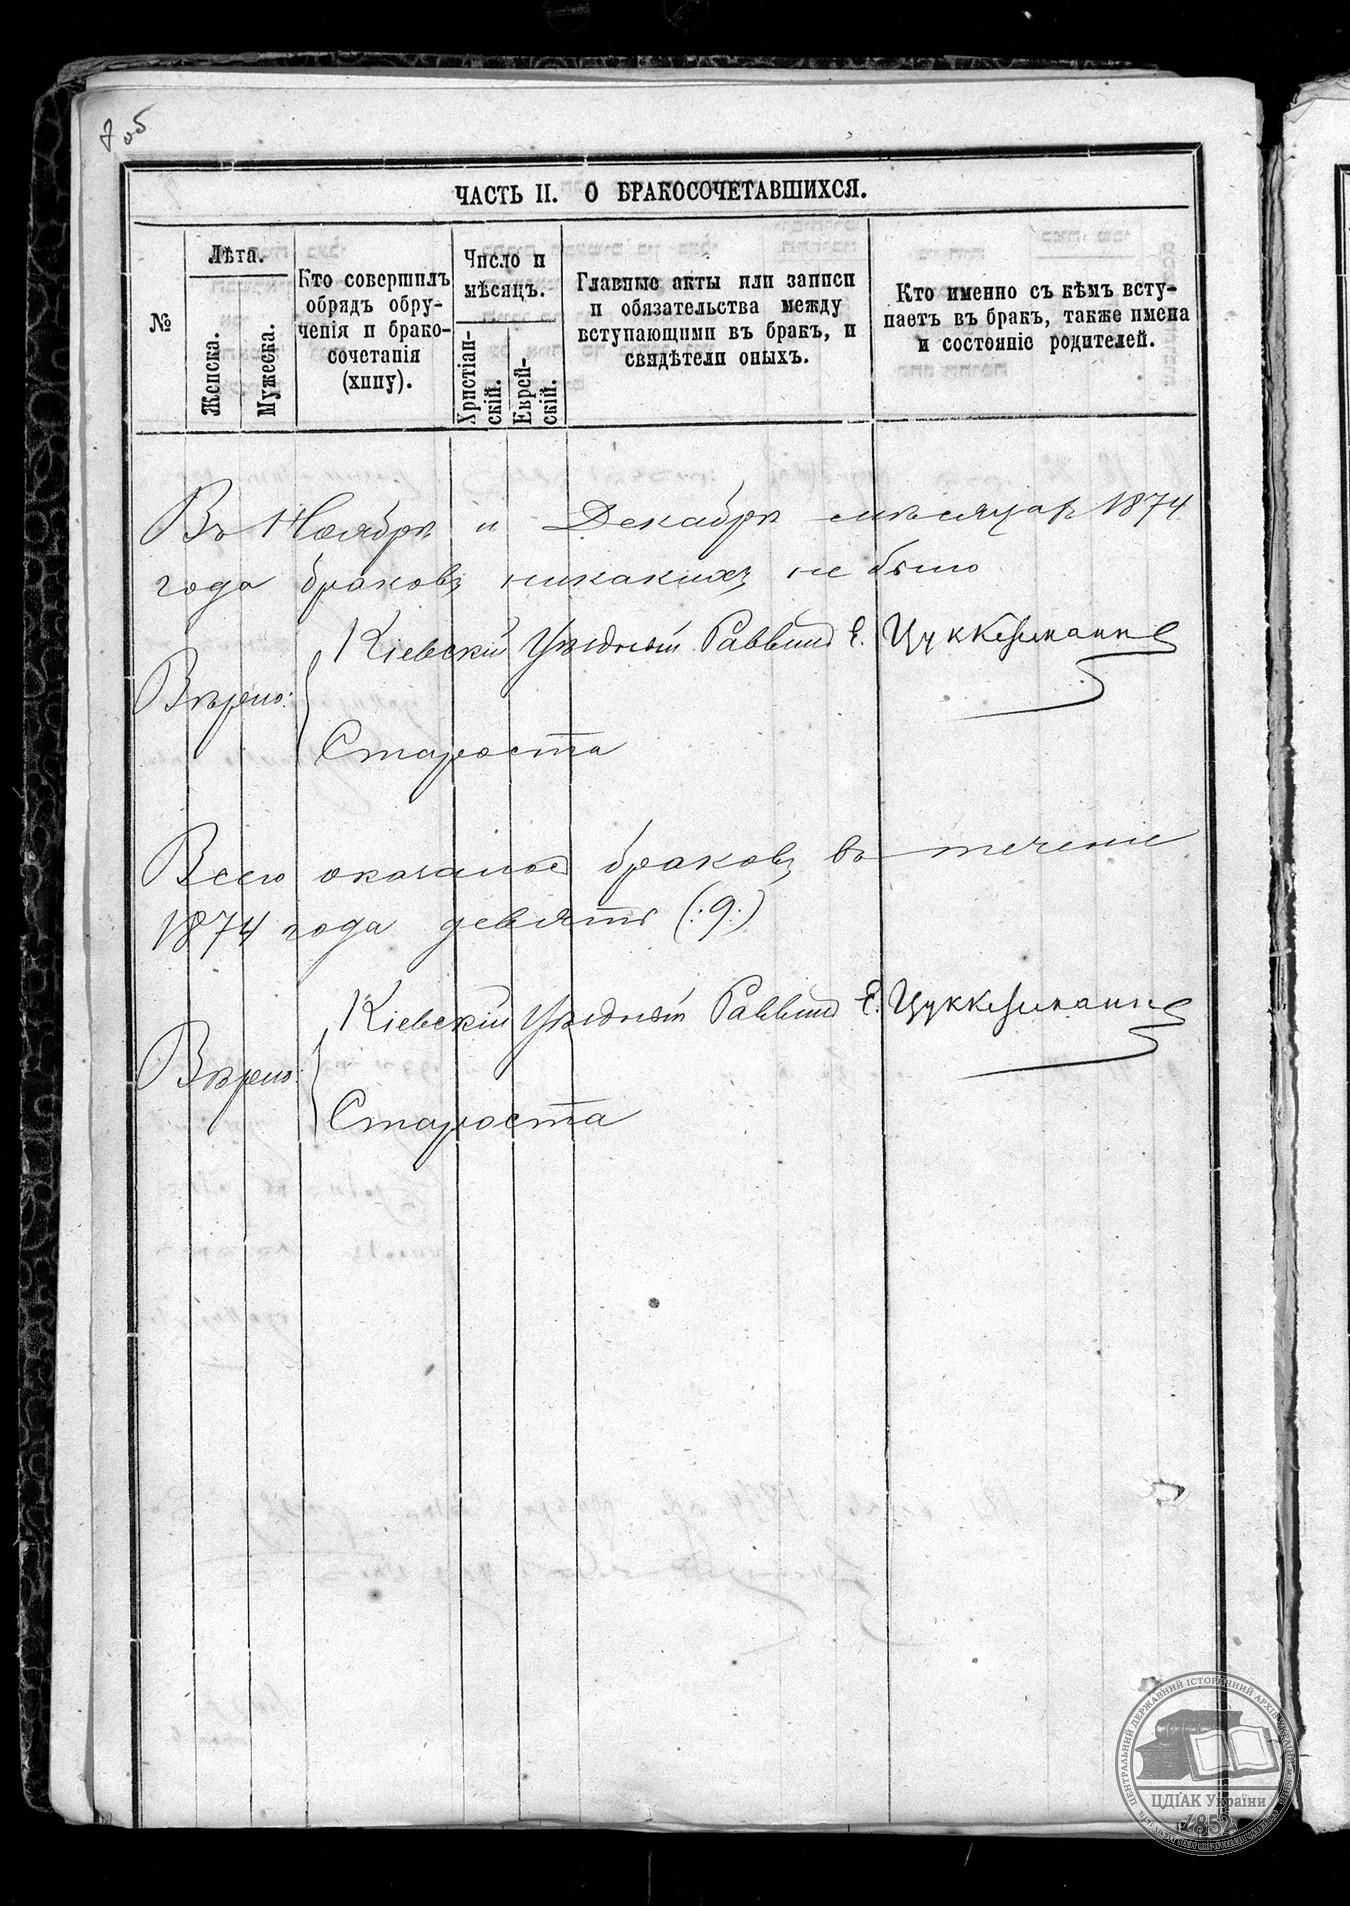 7 об
ЧАСТЬ II. О БРАКОСОЧЕТАВШИХСЯ.
№
Лѣта.
Женска.
Мужеска.
Кто совершилъ
обрядъ обру-
ченія и брако-
сочетанія
(хипу).
Число и
мѣсяцъ.
Христіан-
скій.
Еврей-
скій.
Главные акты или записи
и обязательства между
вступающими въ бракъ, и
свидѣтели оныхъ.
Кто именно съ кѣмъ всту-
паетъ въ бракъ, также имена
и состояніе родителей.
Въ Ноябрѣ и Декабрѣ мѣсяцах 1874
года браковъ никакихъ не было
Кіевскій Уѣздный Раввинъ Е. Цуккерманъ
Вѣрно:
Староста
Всего оказалось браковъ въ теченіе
1874 года девять (:9:)
Кіевскій Уѣздный Раввинъ Е. Цуккерманъ
Вѣрно:
Староста
ЦЕНТРАЛЬНИЙ ДЕРЖАВНИЙ ІСТОРИЧНИЙ АРХІВ УКРАЇНИ
ЦДІАК України
1852